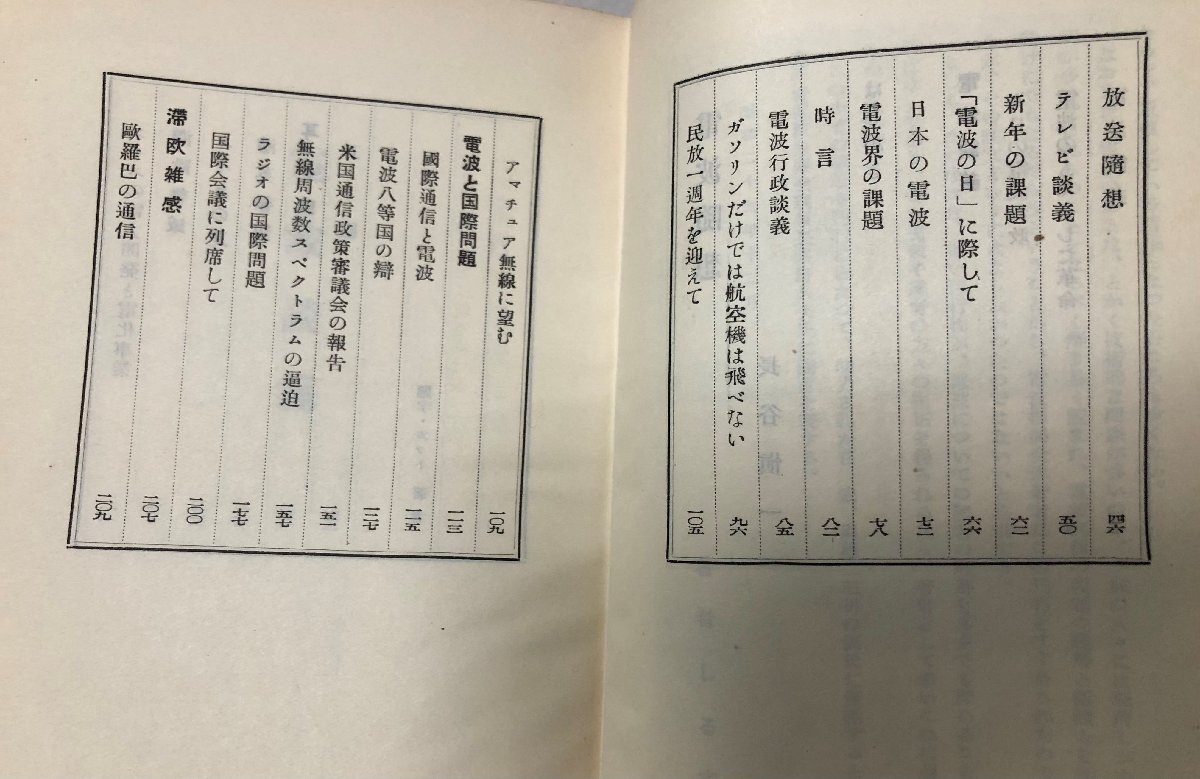 放送隨想 四六
テレビ談義 五〇
新年の課題 六二
「電波の日」に際して 六六
日本の電波 七二
電波界の課題 七八
時言 八二
電波行政談義 八五
ガソリンだけでは航空機は飛べない 九六
民放一週年を迎えて 一〇五
アマチュア無線に望む 一〇九
電波と国際問題 一一三
國際通信と電波 一一五
電波八等国の辯 一二七
米国通信政策審議会の報告 一五一
無線周波数スペクトラムの逼迫 一五七
ラジオの国際問題 一七七
国際会議に列席して 二〇〇
滯欧雑感 二〇七
歐羅巴の通信 二〇九